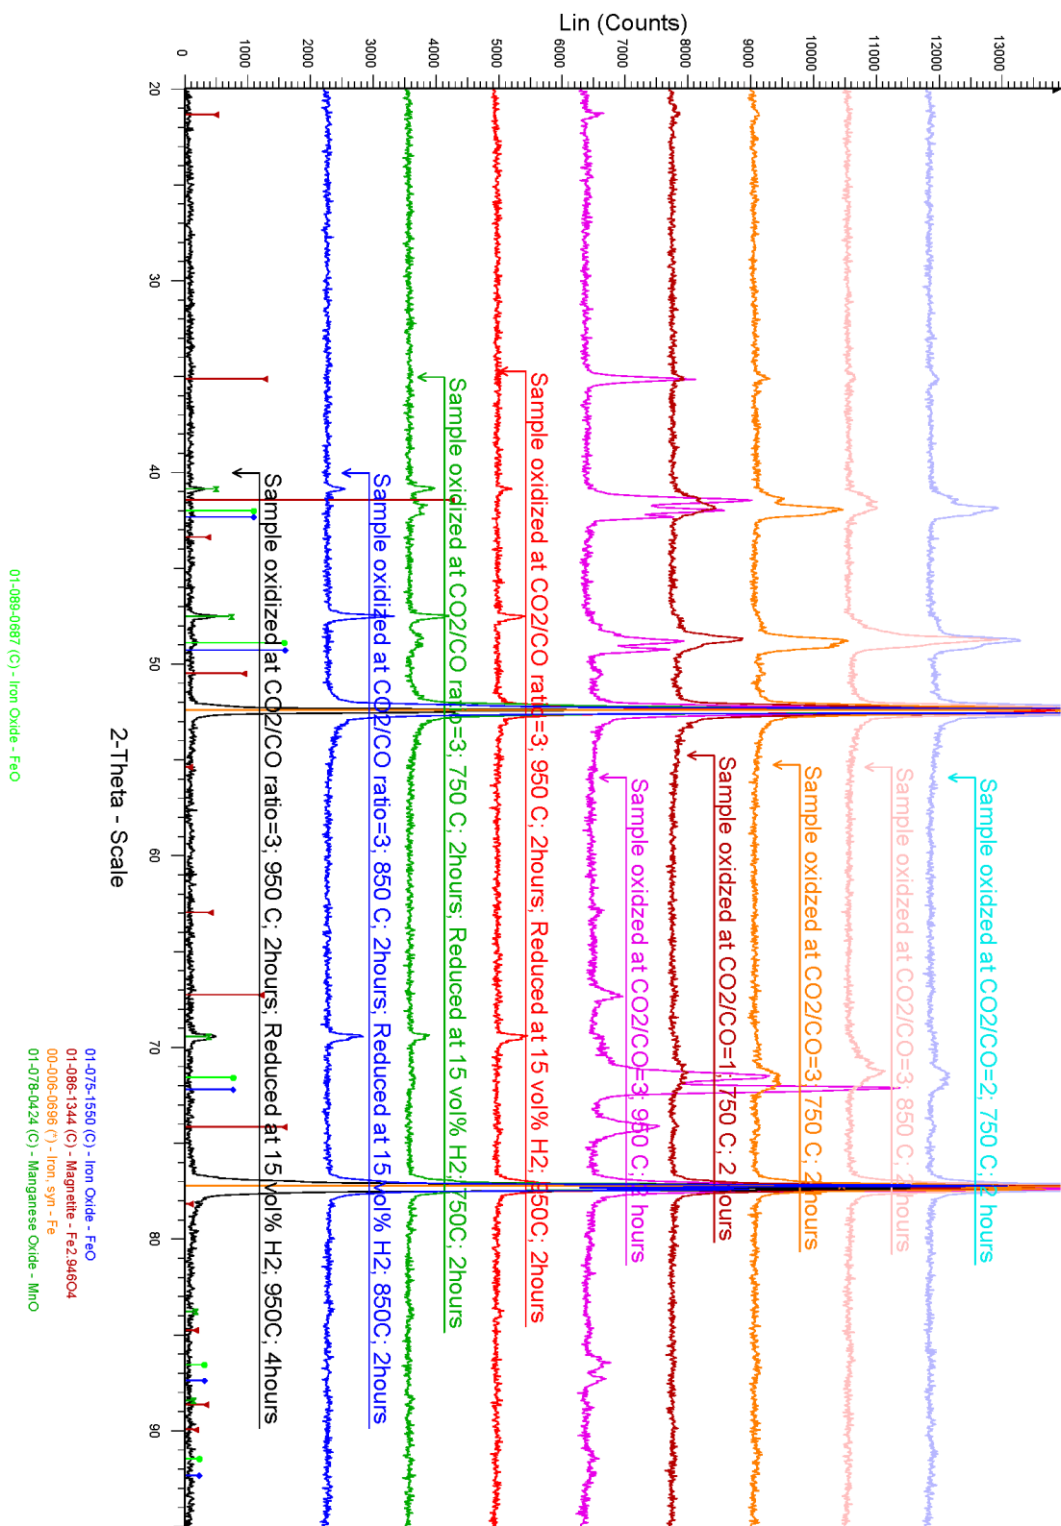 Lin (Counts)
13000
12000
11000
10000
9000
8000
7000
6000
5000
4000
3000
2000
1000
0
Sample oxidzed at CO2/CO=2; 750 C; 2 hours
Sample oxidzed at CO2/CO=3; 850 C; 2 hours
Sample oxidzed at CO2/CO=3 750 C; 2hours
Sample oxidzed at CO2/CO=1; 750 C; 2 hours
Sample oxidzed at CO2/CO=3; 950 C; hours
Sample oxidized at CO2/CO ratio=3; 950 C; 2hours; Reduced at 15 vol% H2; 950C; 2hours
Sample oxidized at CO2/CO ratio=3; 750 C; 2hours; Reduced at 15 vol% H2; 750C; 2hours
Sample oxidized at CO2/CO ratio=3; 850 C; 2hours; Reduced at 15 vol% H2; 850C; 2hours
Sample oxidized at CO2/CO ratio=3; 950 C; 2hours; Reduced at 15 vol% H2; 950C; 4hours
20
30
40
50
60
70
80
90
2-Theta - Scale
01-075-1550 (C) - Iron Oxide - FeO
01-086-1344 (C) - Magnetite - Fe2.946O4
00-006-0696 (*) - Iron, syn - Fe
01-078-0424 (C) - Manganese Oxide - MnO
01-089-0687 (C) - Iron Oxide - FeO